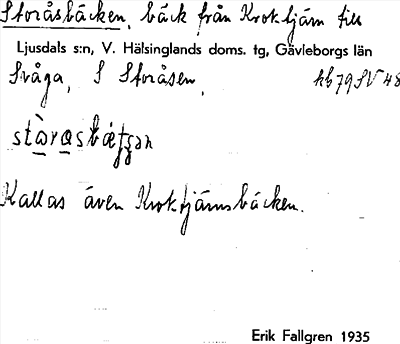 Storåsbäcken, bäck från Kroktjärn till
Ljusdals s:n, V. Hälsinglands doms. tg, Gävleborgs län
Svåga, S Storåsen,
kb 79 SV 48
Kallas även Kroktjärnsbäcken.
Erik Fallgren 1935